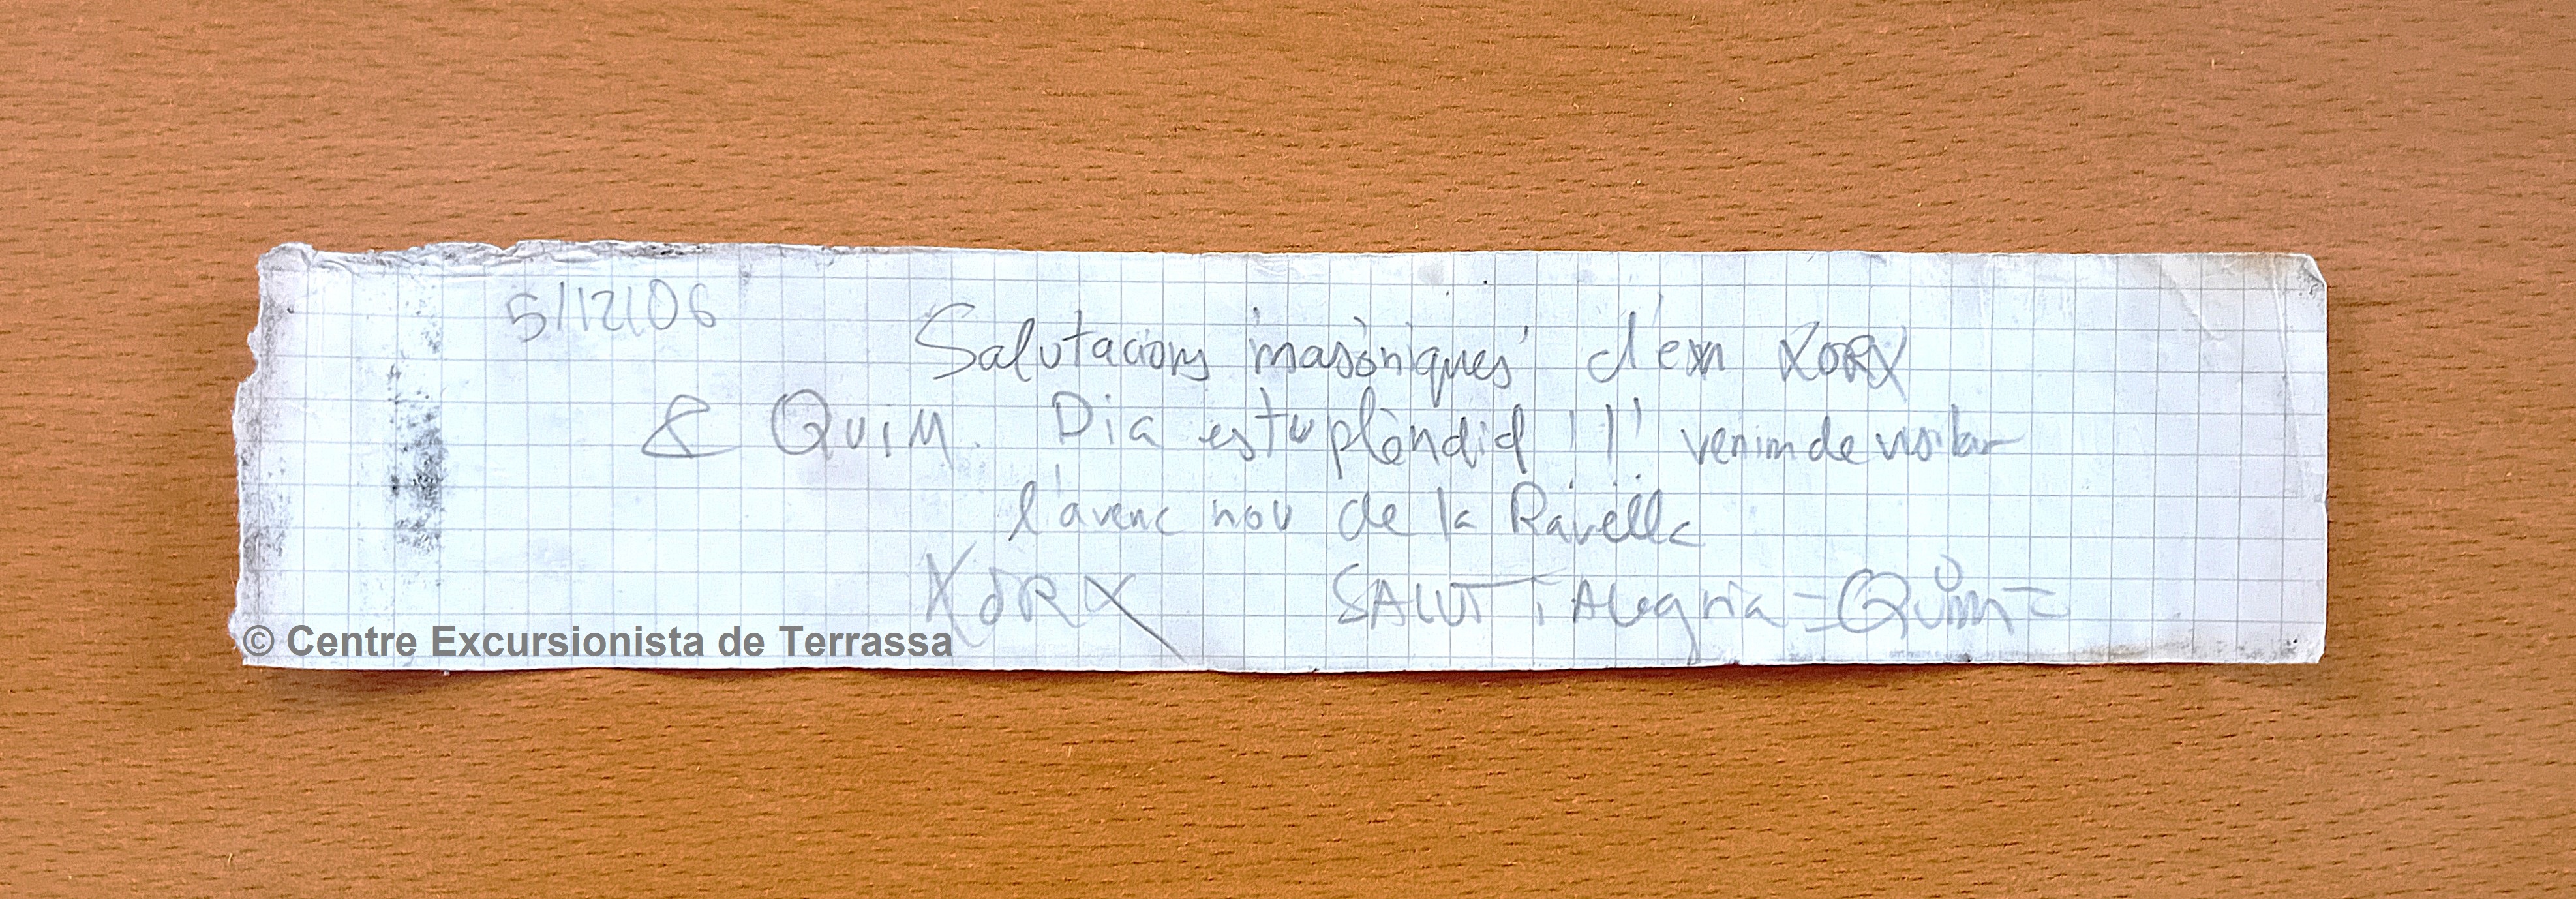 5/12/06
Salutacions 'masòniques' d'en XORX
& QUIM. Dia estuplèndid !! venim de visitar
l'avenc nou de la Ravella
XORX SALUT i Alegria =QUIM=
© Centre Excursionista de Terrassa